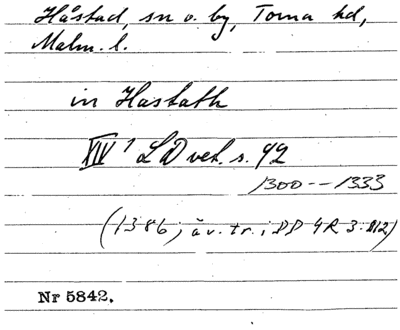 Håstad, sn o. by, Torna hd,
Malm. l.
in Hastath
XIV 1 LD vet. s. 92
1300--1333
(1386, äv. tr. i DD 4R 3:112)
Nr 5842.